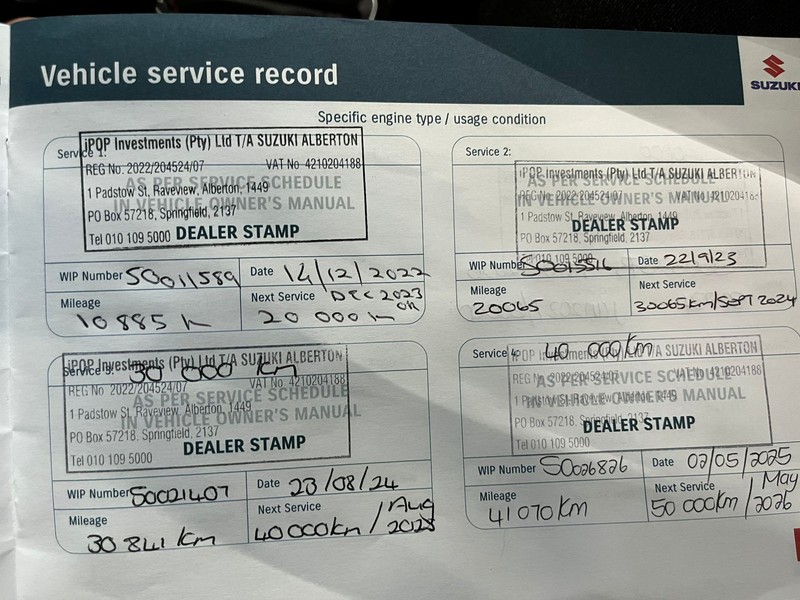 Vehicle service record
SUZUKI
Specific engine type / usage condition
Service 1:
iPOP Investments (Pty) Ltd T/A SUZUKI ALBERTON
REG No. 2022/204524/07 VAT No 4210204188
AS PER SERVICE SCHEDULE
1 Padstow St, Raveview, Alberton, 1449
IN VEHICLE OWNER'S MANUAL
PO Box 57218, Springfield, 2137
Tel 010 109 5000 DEALER STAMP
WIP Number SO011589 Date 14/12/2022
Mileage Next Service DEC 2023
OR
10 885 K 20 000 Km
Service 2:
iPOP Investments (Pty) Ltd T/A SUZUKI ALBERTON
AS PER SERVICE SCHEDULE
REG No. 2022/204524/07 VAT No 4210204188
IN VEHICLE OWNER'S MANUAL
1 Padstow St, Raveview, Alberton, 1449
DEALER STAMP
PO Box 57218, Springfield, 2137
Tel 010 109 5000
WIP Number SO015516 Date 22/9/23
Mileage Next Service
20065 30065km/SEPT 2024
Service 3: 30 000 Km
iPOP Investments (Pty) Ltd T/A SUZUKI ALBERTON
REG No. 2022/204524/07 VAT No 4210204188
AS PER SERVICE SCHEDULE
1 Padstow St, Raveview, Alberton, 1449
IN VEHICLE OWNER'S MANUAL
PO Box 57218, Springfield, 2137
DEALER STAMP
Tel 010 109 5000
WIP Number SO021407 Date 23/08/24
Mileage Next Service
30 841 km 40 000km / Aug 2025
Service 4: 40 000km
iPOP Investments (Pty) Ltd T/A SUZUKI ALBERTON
REG No. 2022/204524/07 VAT No 4210204188
AS PER SERVICE SCHEDULE
1 Padstow St, Raveview, Alberton, 1449
IN VEHICLE OWNER'S MANUAL
PO Box 57218, Springfield, 2137
DEALER STAMP
Tel 010 109 5000
WIP Number SO026826 Date 02/05/2025
Mileage Next Service
41 070 km 50 000km / May 2026